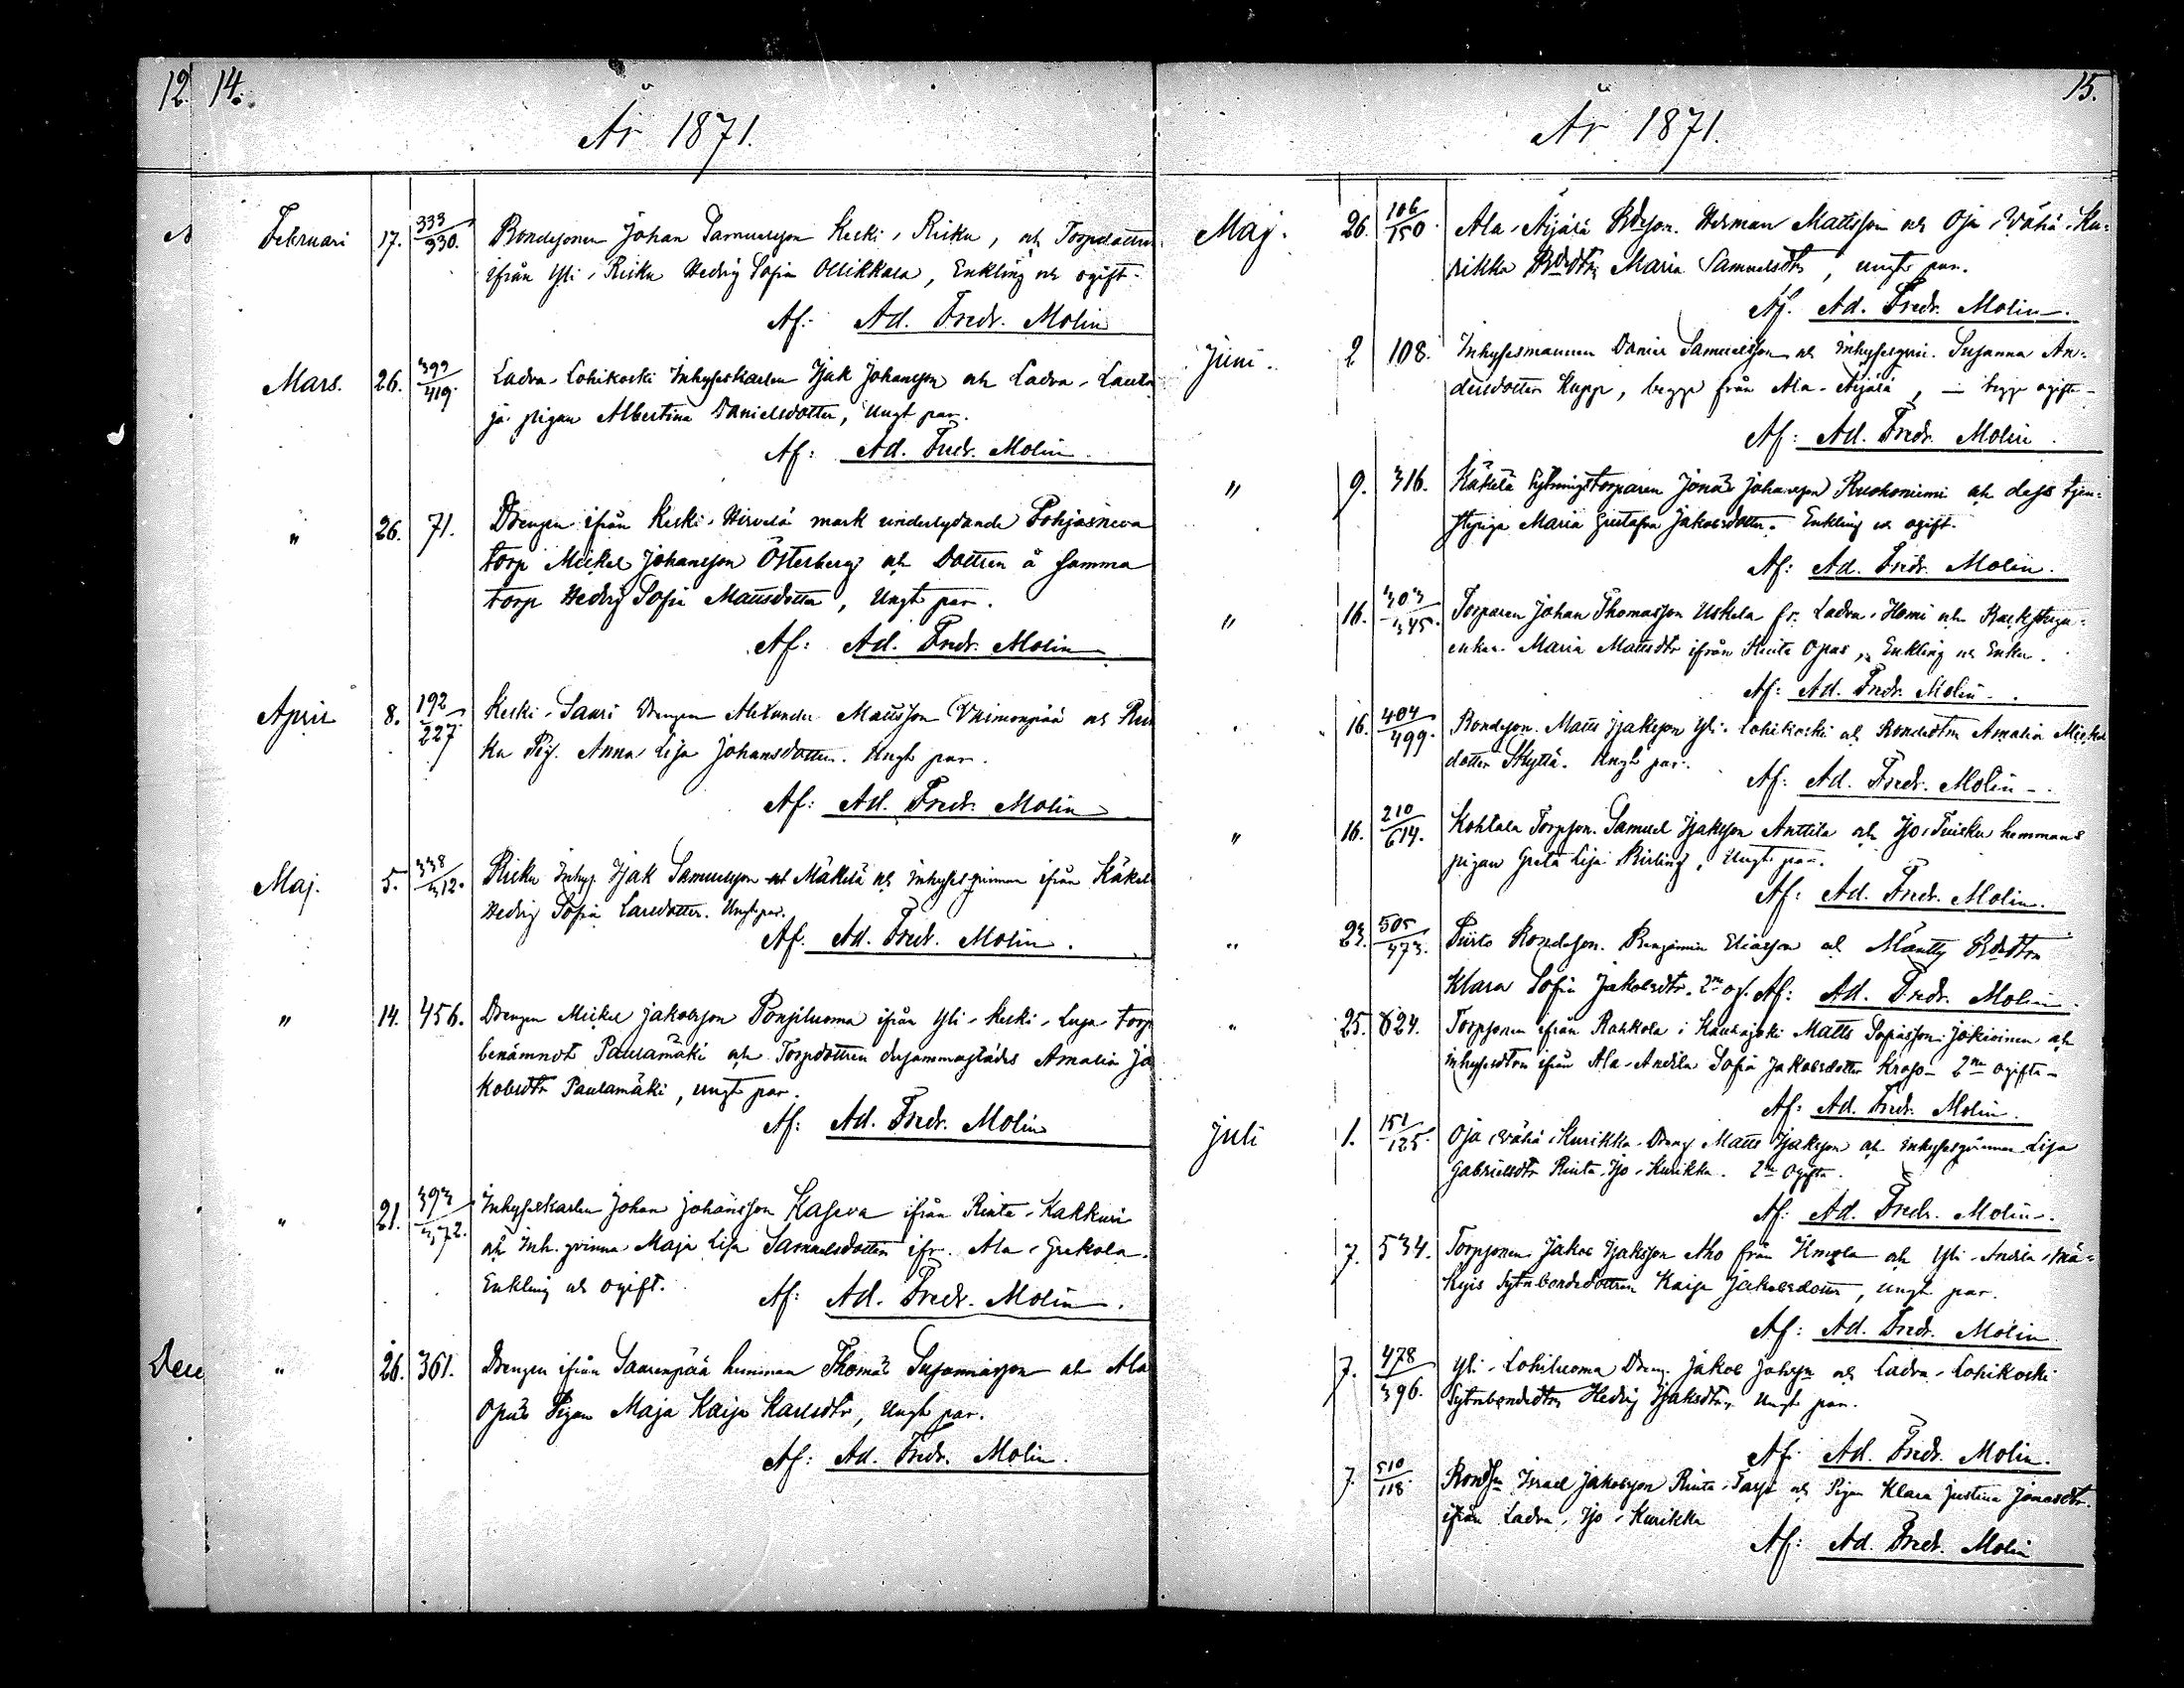 12. 14.
År 1871.
Februari 17. 333/330. Bondesonen Johan Samuelsson Keski-Risku, och Torpdottren
ifrån Yli-Risku Hedvig Sofia Ollikkala, Enkling och ogift.
Af: Ad. Fredr. Molin
Mars. 26. 399/419. Ladva-Lohikoski Inhyseskarlen Isak Johansson och Ladva-Lauta
ja pigan Albertina Danielsdotter, Ungt par.
Af: Ad. Fredr. Molin
" 26. 71. Drengen ifrån Keski-Hirvelä mark underlydande Pohjasneva
torp Mickel Johansson Österberg och Dottren å samma
torp Hedvig Sofia Mattsdotter, Ungt par.
Af: Ad. Fredr. Molin
April 8. 192/227. Keski-Saari Drengen Alexander Mattsson och Ris
ku Pig. Anna Lisa Johansdotter. Ungt par.
Af: Ad. Fredr. Molin
Maj. 5. 338/312. Risku Inhys. Isak Samuelsson Mäkelä och Inhysesqvinnan ifrån Käkel
Hedvig Sofia Larsdotter. Ungt par.
Af. Ad. Fredr. Molin.
" 14. 456. Drengen Mickel Jakobsson Ponsiluoma ifrån Yli-Keski-Luga torp
benämndt Paulamäki och Torpdottren dersammastädes Amalia Ja
kobsdtr Paulamäki, ungt par.
Af: Ad. Fredr. Molin
" 21. 393/372. Inhyseskarlen Johan Johansson Kaseva ifrån Rinta-Kakkuri
och Inh. qvinna Maja Lisa Samuelsdotter ifr. Ala-Grekola.
Enkling och ogift.
Af: Ad. Fredr. Molin.
" 26. 361. Drengen ifrån Saarenpää hemman Thomas Susannasson och Ala
Opas Pigan Maja Kaisa Karlsdtr, Ungt par.
Af: Ad. Fredr. Molin.
15.
År 1871.
Maj. 26. 106/150. Ala-Äijälä Bdeson. Herman Mattsson och Oja-Vähä-Ku-
rikka Bdedtr Maria Samuelsdtr, ungt par.
Af. Ad. Fredr. Molin.
Juni. 2 108. Inhysesmannen Daniel Samuelsson och Inhysesqvin. Susanna An-
dersdotter Kupp, begge från Ala-Äijälä, — begge ogifte –
Af: Ad. Fredr. Molin.
" 9. 316. Käkelä Sytningstorparen Jonas Johansson Ruohoniemi och dess tjen-
stepiga Maria Gustafva Jakobsdotter. Enkling och ogift.
Af: Ad. Fredr. Molin.
" 16. 303/345. Torparen Johan Thomasson Uskela fr. Ladva-Homi och Backstugu-
enkan Maria Mattsdtr ifrån Rinta Opas, Enkling och Enka.
Af: Ad. Fredr. Molin.
" 16. 404/499. Bondeson. Matts Isaksson Yli-Lohikoski och Bondedtrn Amalia Mickels
dotter Skyttä. Ungt par.
Af: Ad. Fredr. Molin.
" 16. 210/614. Kohtala Torpson. Samuel Isaksson Anttila och Iso-Tuisku hemmans
pigan Greta Lisa Birling, Ungt par.
Af: Ad. Fredr. Molin.
" 23. 505/473. Piirto Bondeson. Benjamin Eliasson och Mäntty Bdedtrn
Klara Sofia Jakobsdtr. 2ne og. Af: Ad. Fredr. Molin.
" 25. 624. Torpsonen ifrån Rahkola i Kauhajoki Matts Jokioinen och
inhysesdtren ifrån Ala-Andila Sofia Jakobsdotter – 2ne ogifta –
Af: Ad. Fredr. Molin.
Juli 1. 151/125. Oja-Vähä-Kurikka Dreng Matts Isaksson och Inhysesqvinnan Lisa
Gabrielsdtr Rinta-Iso-Kurikka. 2ne Ogifta.
Af: Ad. Fredr. Molin.
7. 534. Torpsonen Jakob Isaksson Aho från Ilmola och Yli-Andila-Mä-
kis Sytnbondedottren Kaisa Jakobsdotter, ungt par.
Af: Ad. Fredr. Molin
7. 478/396. Yli-Lohiluoma Dreng. Jakob Johsson och Ladva-Lohikoski
Sytnbondedtrn Hedvig Isaksdtr, Ungt par.
Af. Ad. Fredr. Molin.
7. 510/118. Bondson Israel Jakobsson Rinta-Tassi och Pigan Klara Justina Jonasdtr.
ifrån Ladva-Iso-Kurikka
Af: Ad. Fredr. Molin